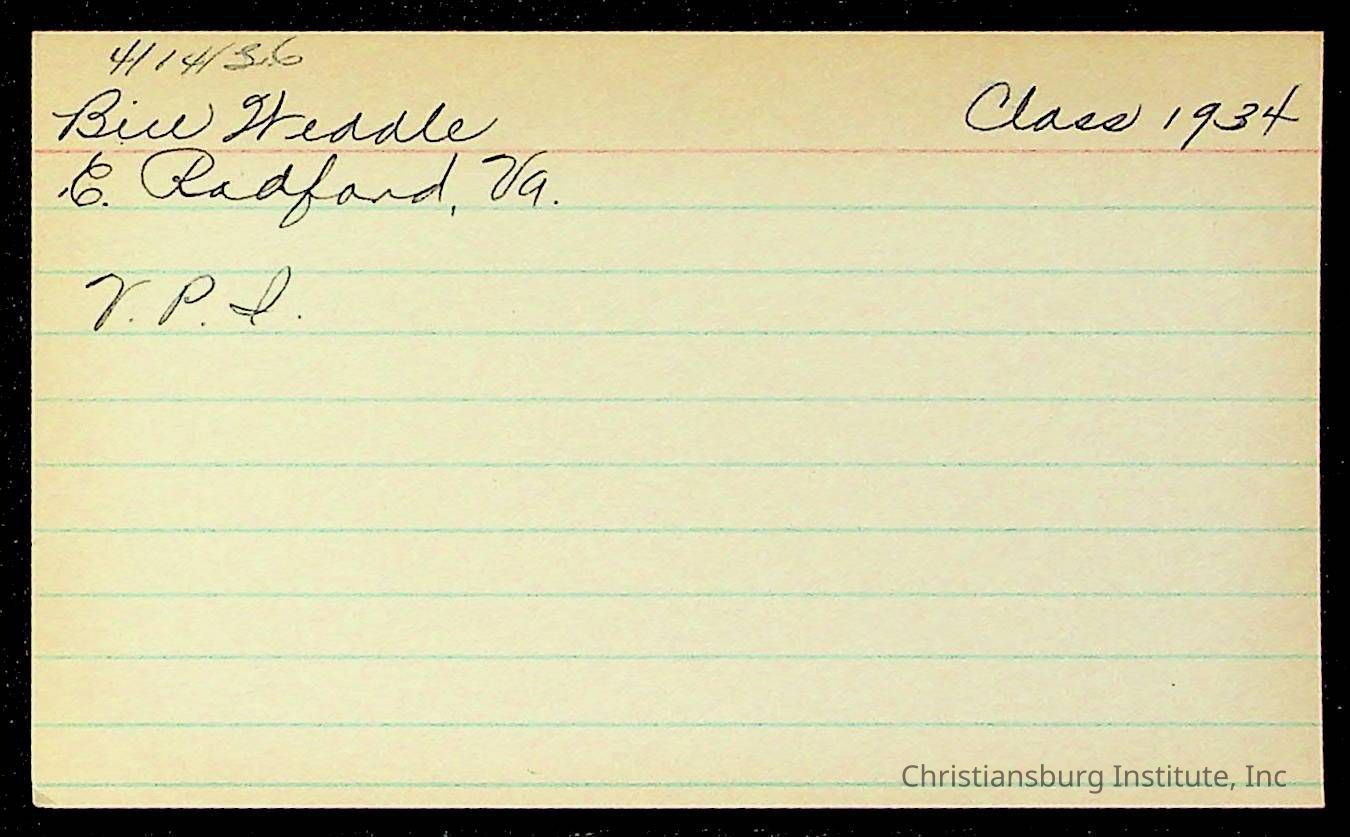 4/14/36
Bill Weddle Class 1934
E. Radford, Va.
V. P. I.
Christiansburg Institute, Inc